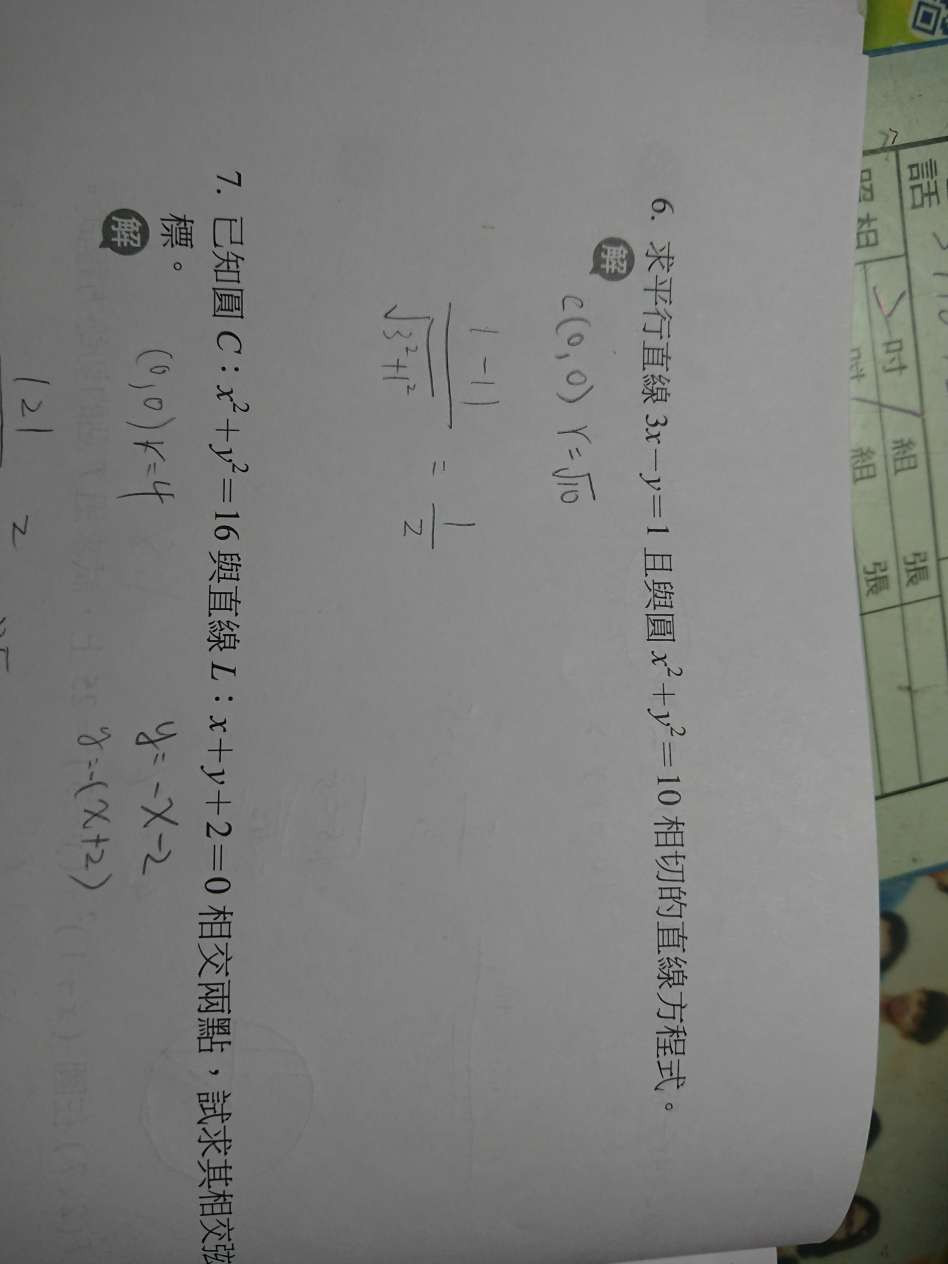 6. 求平行直線 3x－y＝1 且與圓 x²＋y²＝10 相切的直線方程式。
解
C(0,0) r=√10
|-1|
√3²+1²
= 1/2
7. 已知圓 C：x²＋y²＝16 與直線 L：x＋y＋2＝0 相交兩點，試求其相交弦
標。
解
(0,0) r=4
y=-x-2
y=-(x+2)
|2|
2
話
照相
吋 組 張
吋 組 張